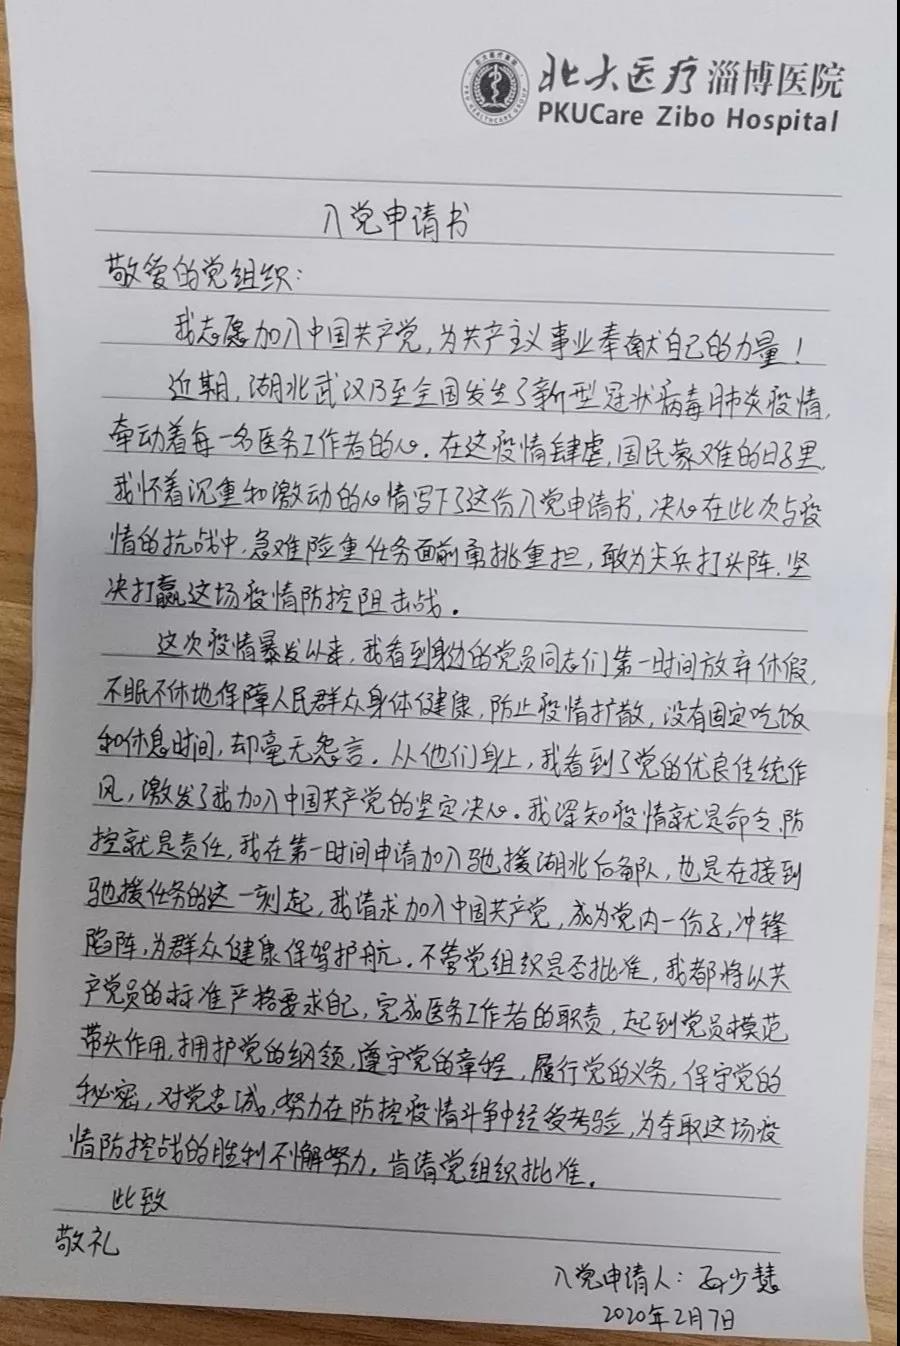 北大医疗 淄博医院
PKUCare Zibo Hospital
入党申请书
敬爱的党组织：
我志愿加入中国共产党，为共产主义事业奉献自己的力量！
近期，湖北武汉乃至全国发生了新型冠状病毒肺炎疫情，
牵动着每一名医务工作者的心。在这疫情肆虐，国民蒙难的日子里，
我怀着沉重和激动的心情写下了这份入党申请书，决心在此次与疫
情的抗战中，急难险重任务面前勇挑重担，敢为尖兵打头阵，坚
决打赢这场疫情防控阻击战。
这次疫情暴发以来，我看到身边的党员同志们第一时间放弃休假，
不眠不休地保障人民群众身体健康，防止疫情扩散，没有固定吃饭
和休息时间，却毫无怨言。从他们身上，我看到了党的优良传统作
风，激发了我加入中国共产党的坚定决心。我深知疫情就是命令，防
控就是责任，我在第一时间申请加入驰援湖北后备队，也是在接到
驰援任务的这一刻起，我请求加入中国共产党，成为党内一份子，冲锋
陷阵，为群众健康保驾护航。不管党组织是否批准，我都将以共
产党员的标准严格要求自己，完成医务工作者的职责，起到党员模范
带头作用，拥护党的纲领，遵守党的章程，履行党的义务，保守党的
秘密，对党忠诚，努力在防控疫情斗争中经受考验，为夺取这场疫
情防控战的胜利不懈努力，肯请党组织批准。
此致
敬礼
入党申请人：少慧
2020年2月7日